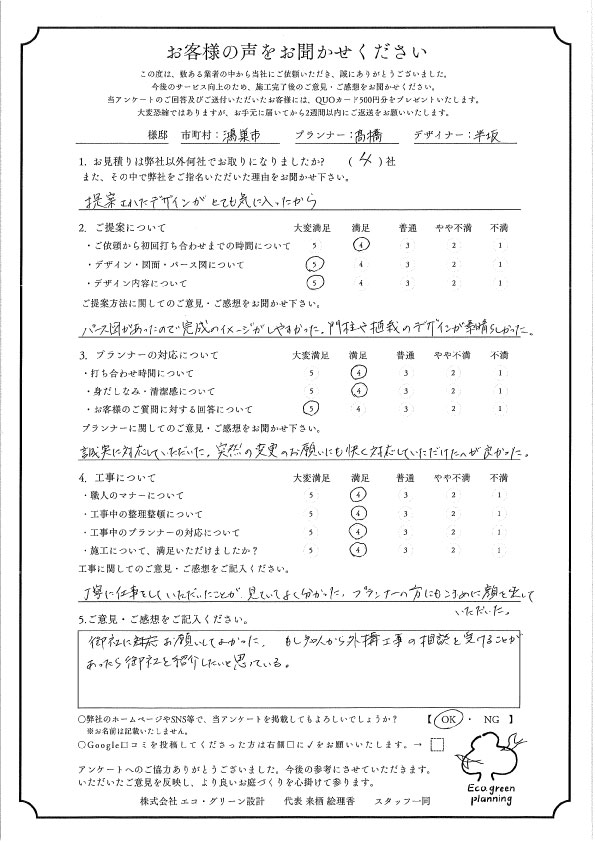 お客様の声をお聞かせください
この度は、数ある業者の中から当社にご依頼いただき、誠にありがとうございました。
今後のサービス向上のため、施工完了後のご意見・ご感想をお聞かせください。
当アンケートのご回答及びご送付いただいたお客様には、QUOカード500円分をプレゼントいたします。
大変恐縮ではありますが、お手元に届いてから2週間以内にご返送をお願いいたします。
様邸 市町村：鴻巣市 プランナー：髙橋 デザイナー：半坂
1. お見積りは弊社以外何社でお取りになりましたか? ( 4 ) 社
また、その中で弊社をご指名いただいた理由をお聞かせ下さい。
提案されたデザインがとても気に入ったから
2. ご提案について 大変満足 満足 普通 やや不満 不満
・ご依頼から初回打ち合わせまでの時間について 5 4 3 2 1
・デザイン・図面・パース図について 5 4 3 2 1
・デザイン内容について 5 4 3 2 1
ご提案方法に関してのご意見・ご感想をお聞かせ下さい。
パース図があったので完成のイメージがしやすかった。門柱や植栽のデザインが素晴らしかった。
3. プランナーの対応について 大変満足 満足 普通 やや不満 不満
・打ち合わせ時間について 5 4 3 2 1
・身だしなみ・清潔感について 5 4 3 2 1
・お客様のご質問に対する回答について 5 4 3 2 1
プランナーに関してのご意見・ご感想をお聞かせ下さい。
誠実に対応していただいた。突然の変更のお願いにも快く対応していただけたのが良かった。
4. 工事について 大変満足 満足 普通 やや不満 不満
・職人のマナーについて 5 4 3 2 1
・工事中の整理整頓について 5 4 3 2 1
・工事中のプランナーの対応について 5 4 3 2 1
・施工について、満足いただけましたか？ 5 4 3 2 1
工事に関してのご意見・ご感想をご記入ください。
丁寧に仕事をしていただいたことが、見ていてよく分かった。プランナーの方にもこまめに顔を出して
いただいた。
5.ご意見・ご感想をご記入ください。
御社にお願いしてよかった。もし知人から外構工事の相談を受けることが
あったら御社を紹介したいと思っている。
〇弊社のホームページやSNS等で、当アンケートを掲載してもよろしいでしょうか？ 【 OK ・ NG 】
※お名前は記載いたしません。
〇Google口コミを投稿してくださった方は右側□に✓をお願いいたします。→
アンケートへのご協力ありがとうございました。今後の参考にさせていただきます。
いただいたご意見を反映し、より良いお庭づくりを心掛けて参ります。
Eco.green
planning
株式会社 エコ・グリーン設計 代表 来栖 絵理香 スタッフ一同